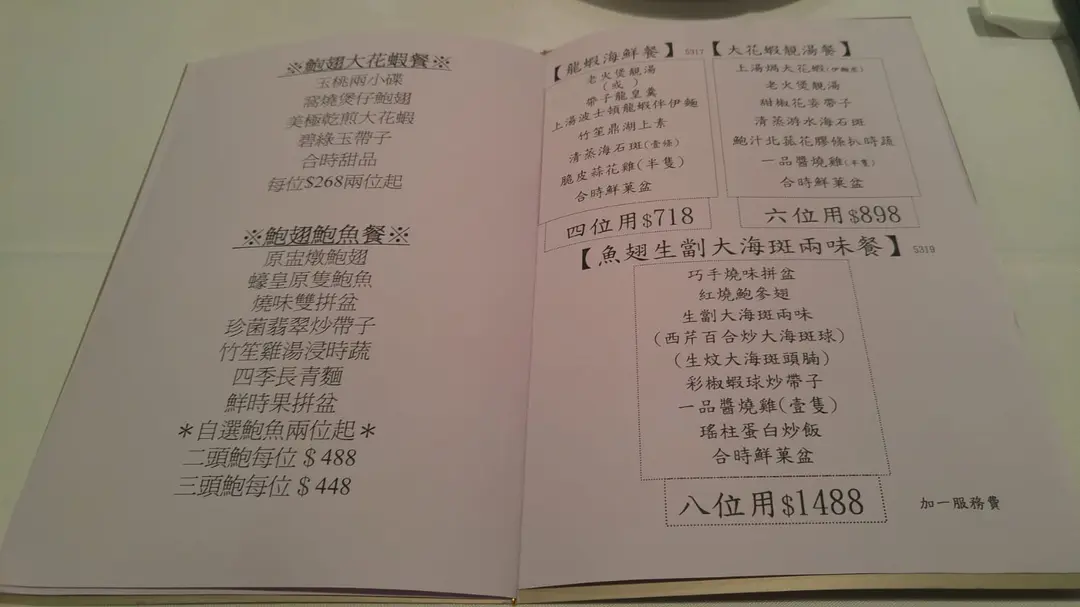 ※鮑翅大花蝦餐※
玉桃兩小碟
窩燒煲仔鮑翅
美極乾煎大花蝦
碧綠玉帶子
合時甜品
每位$268兩位起
※鮑翅鮑魚餐※
原盅燉鮑翅
蠔皇原隻鮑魚
燒味雙拼盆
珍菌翡翠炒帶子
竹笙雞湯浸時蔬
四季長青麵
鮮時果拼盆
＊自選鮑魚兩位起＊
二頭鮑每位＄488
三頭鮑每位＄448
【龍蝦海鮮餐】 5317
老火煲靚湯
（或）
帶子龍皇羹
上湯波士頓龍蝦伴伊麵
竹笙鼎湖上素
清蒸海石斑(壹條)
脆皮蒜花雞(半隻)
合時鮮菓盆
四位用$718
【大花蝦靚湯餐】
上湯焗大花蝦(伊麵底)
老火煲靚湯
甜椒花姿帶子
清蒸游水海石斑
鮑汁北菰花膠條扒時蔬
一品醬燒雞(半隻)
合時鮮菓盆
六位用$898
【魚翅生劏大海斑兩味餐】 5319
巧手燒味拼盆
紅燒鮑參翅
生劏大海斑兩味
(西芹百合炒大海斑球)
(生炆大海斑頭腩)
彩椒蝦球炒帶子
一品醬燒雞(壹隻)
瑤柱蛋白炒飯
合時鮮菓盆
八位用$1488
加一服務費